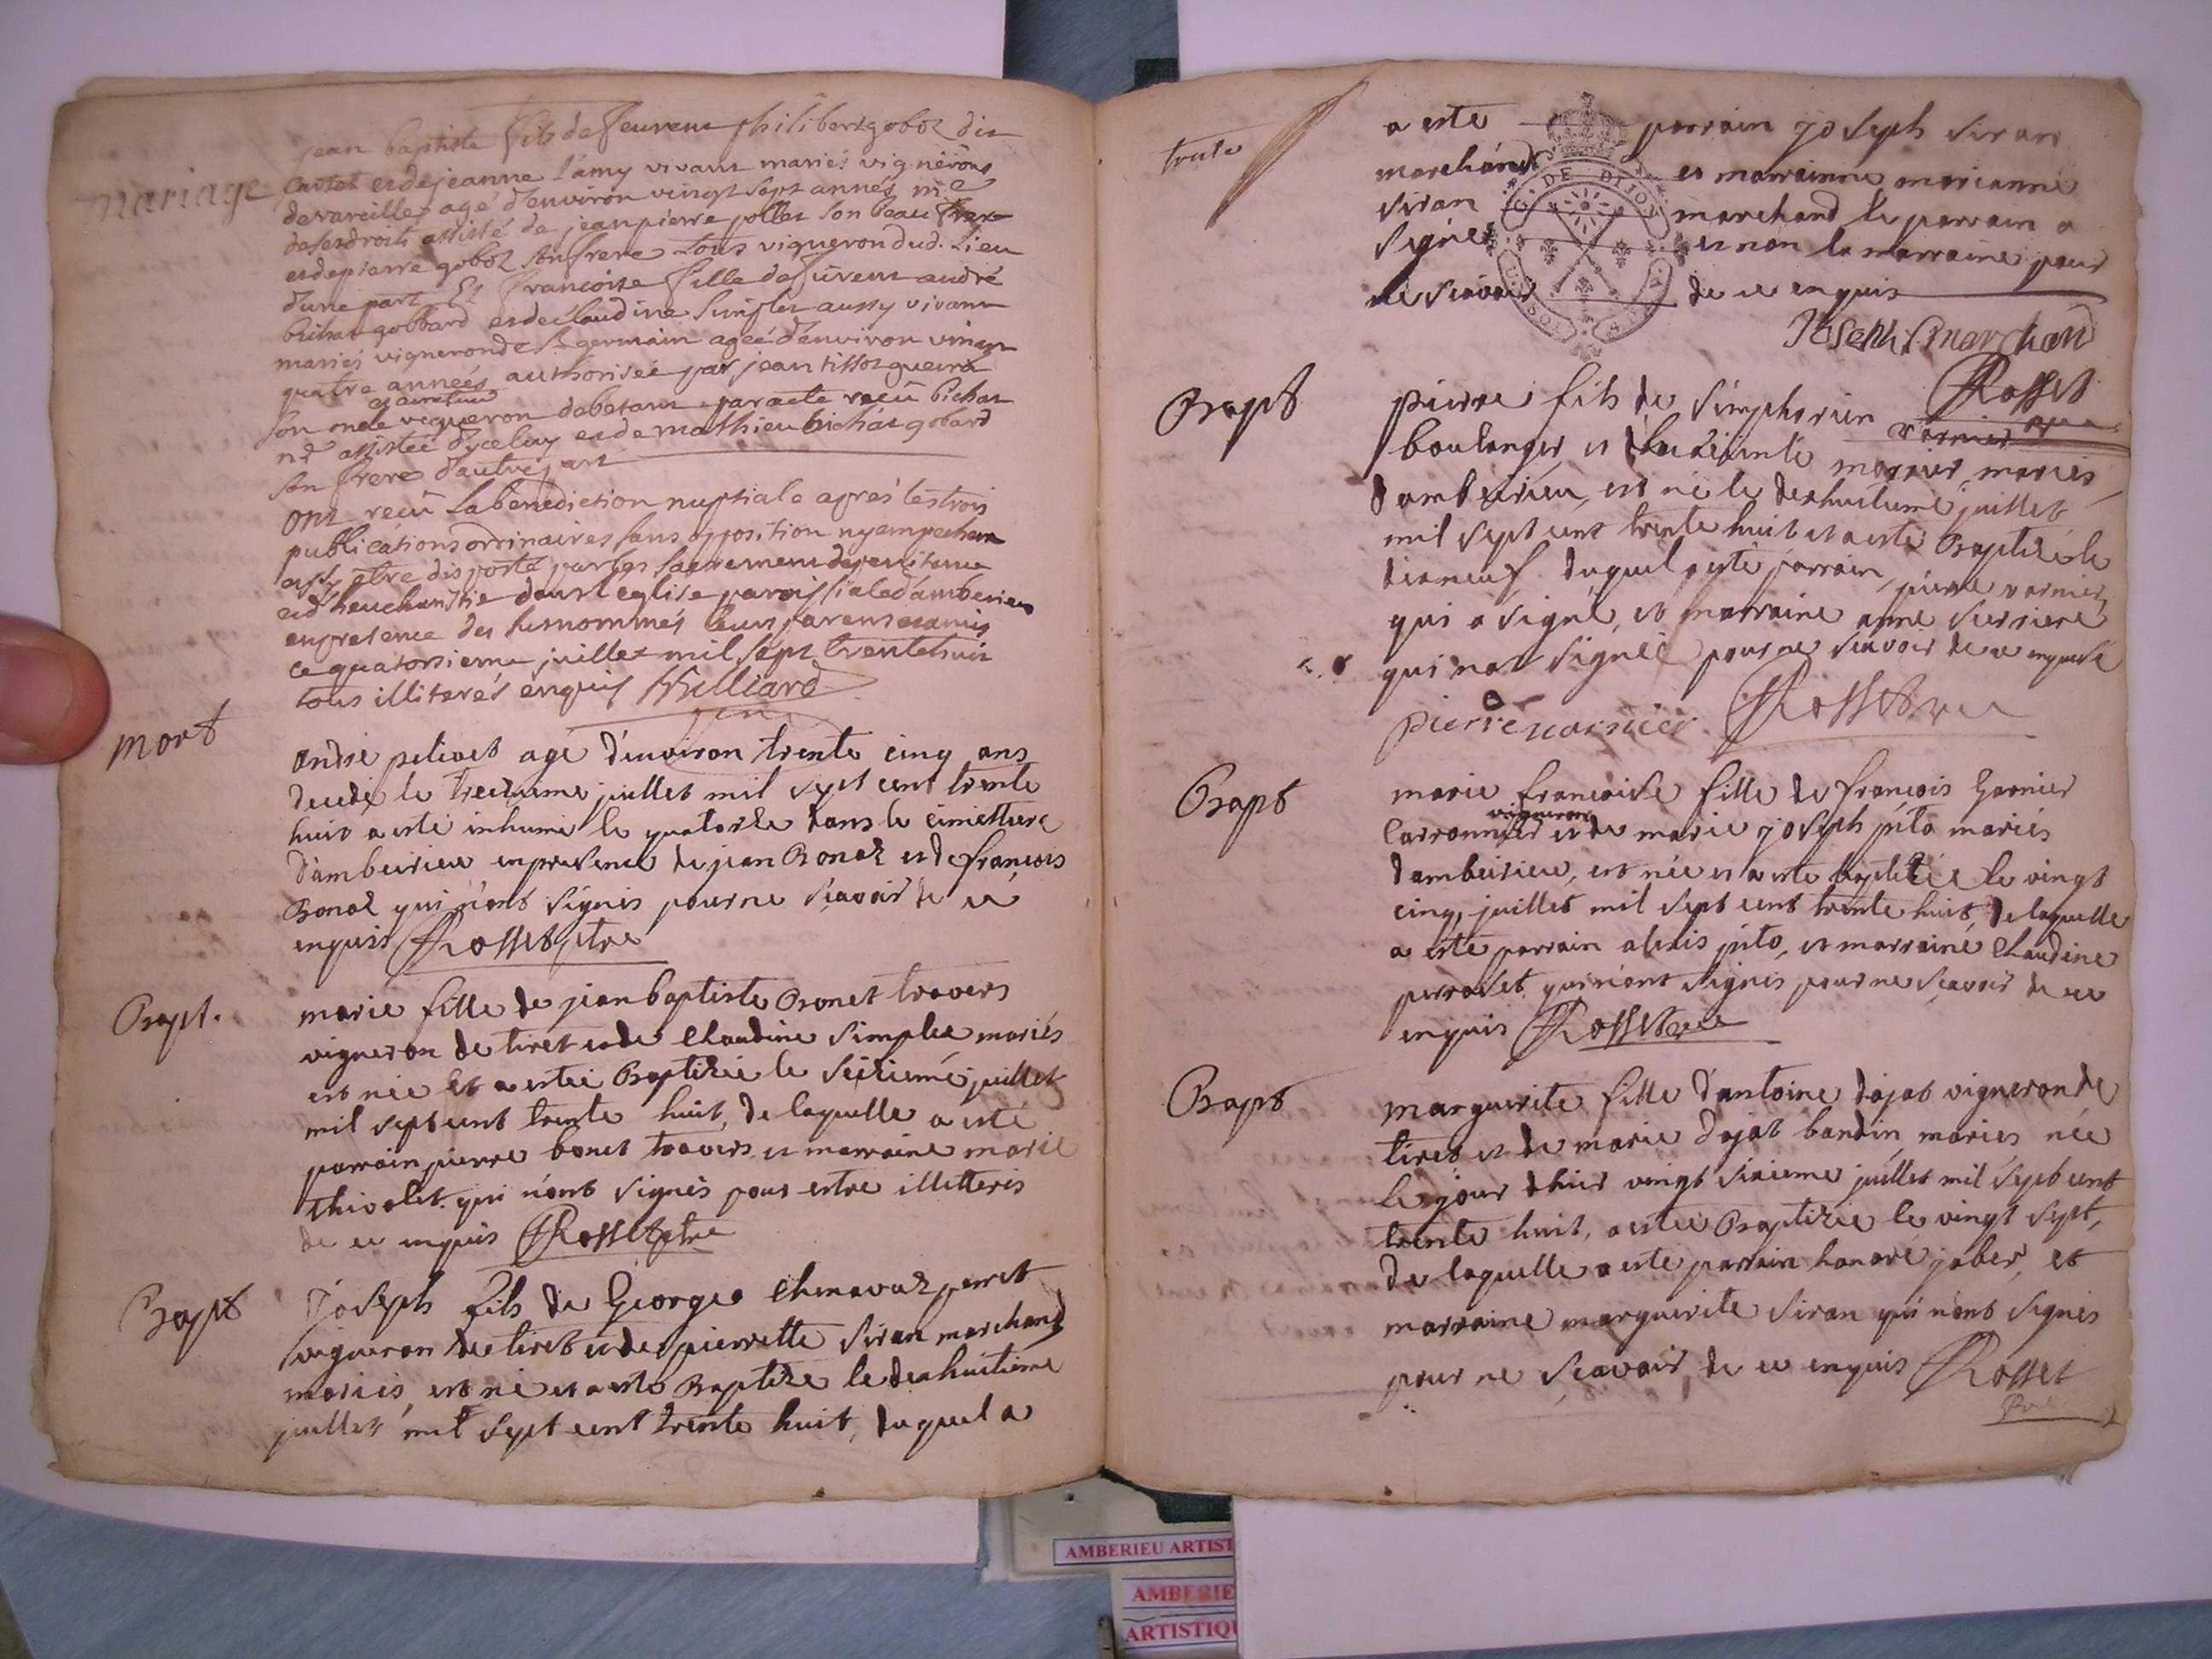 mariage
jean baptiste fils de feurent philibert goboz dit
cartet et de jeanne l'amy vivant mariés vignerons
de vareilles agé d'environ vingt sept annés me
de ses droits assisté de jean pierre pollet son beau frere
et de pierre goboz son frere tous vigneron dud. Lieu
d'une part Et francoise fille de furent andré
bichat gobbard et de claudine simplet aussy vivant
mariés vigneron de St germain ageé d'environ vingt
quatre anneés authorisée par jean tissot
son oncle vigneron dabetant par acte reçû bichat
nre assisteé d'yceluy et de mathieu bichat gobard
son frere d'autre part
ont reçû la benediction nuptiale aprés les trois
publications ordinaires sans opposition ny empechem
aysy etre disposté par les sacremens de penitence
et d'heucharistie dans l'eglise paroissiale d'amberieu
en presence des susnommés leurs parens et amis
ce quatorsieme juillet mil sept trente huit
tous illiterés enquis hilliard
mort
andré pelivet agé d'environ trente cinq ans
decedé le treizieme juillet mil sept cent trente
huit a esté inhumé le quatorze dans le cimettiere
d'ambeirieu en presence de jean Bonaz et de francois
Bonaz qui n'ont signés pour ne sçavoir de ce
enquis Rosset ptre
Bapt.
marie fille de jean baptiste Bonet travers
vigneron de tiret et de Claudine simplet mariés
est née Et a esteé Baptizeé le seizieme juillet
mil sept cent trente huit, de laquelle a esté
parrain pierre bonet travers et marraine marie
thivolet qui n'ont signés pour estre illetterés
de ce enquis Rosset ptre
Bapt
Joseph fils de George Chenavaz perret
vigneron de tiret et de pierrette siran marchand
mariés, est né et a esté Baptizé le dixhuitieme
juillet mil sept cent trente huit, duquel a
trente
a esté parrain joseph siran
marchand et marrainne marianne
siran marchand le parrain a
signé et non la marraine pour
ne scavoir de ce enquis
GEN. DE DIJON
Joseph S marchand
Rosset
Bapt
pierre fils de simphorien varnier
boulanger et de mornier mariés
d'ambeirieu, est né le dixhuitieme juillet
mil sept cent trente huit et a esté Baptizé le
dixneuf duquel a esté parrain pierre varnier
qui a signé, et marraine anne
qui n'a signée pour ne scavoir de ce enquise
pierre varnier Rosset
Bapt
marie francoise fille de françois Garnier
vigneron
Carronnier et de marie joseph pito mariés
d'ambeirieu, est née et a esté baptizée le vingt
cinq juillet mil sept cent trente huit, de laquelle
a esté parrain alexis pito, et marrainé Claudine
perroset qui n'ont signés pour ne sçavoir de ce
enquis Rosset
Bapt
marguerite fille d'antoine dajat vigneron de
tiret et de marie dajat bandin mariés née
le jour d'hier vingt sixieme juillet mil sept cent
trente huit, a esteé Baptizeé le vingt sept,
de laquelle a esté parrain honoré jaber, et
marraine marguerite siran qui n'ont signés
pour ne sçavoir de ce enquis Rosset
AMBERIEU ARTIST
AMBERIE
ARTISTIQU